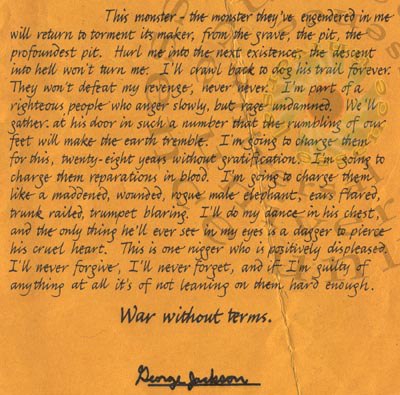 This monster - the monster they've engendered in me
will return to torment its maker, from the grave, the pit, the
profoundest pit. Hurl me into the next existence, the descent
into hell won't turn me. I'll crawl back to dog his trail forever.
They won't defeat my revenge, never never. I'm part of a
righteous people who anger slowly, but rage undamned. We'll
gather at his door in such a number that the rumbling of our
feet will make the earth tremble. I'm going to charge them
for this, twenty-eight years without gratification. I'm going to
charge them reparations in blood. I'm going to charge them
like a maddened, wounded, rogue male elephant, ears flared,
trunk railed, trumpet blaring. I'll do my dance in his chest,
and the only thing he'll ever see in my eyes is a dagger to pierce
his cruel heart. This is one nigger who is positively displeased.
I'll never forgive, I'll never forget, and if I'm guilty of
anything at all it's of not leaning on them hard enough.
War without terms.
George Jackson